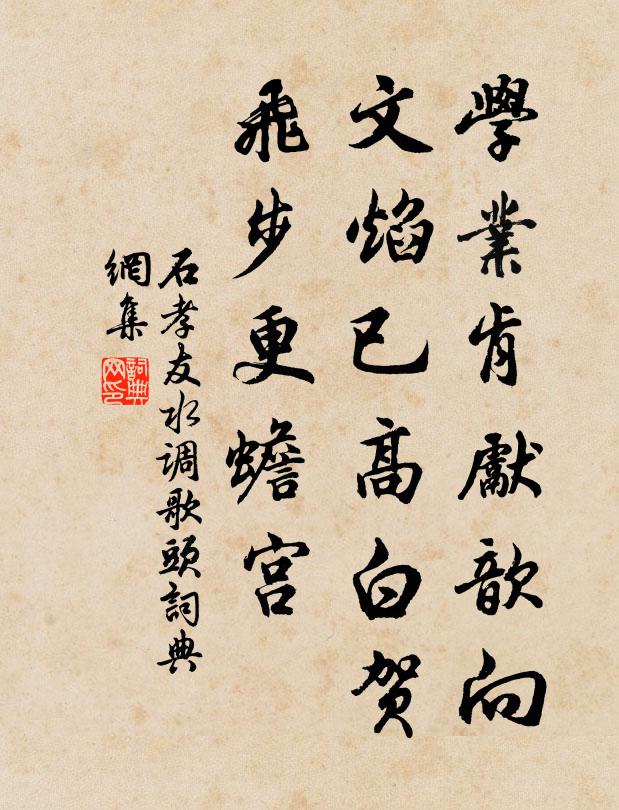 學業肯獻歆向
文焰已高白賀
飛步更蟾宫
石孝友水调歌頭詞典
網集
詞典
网印